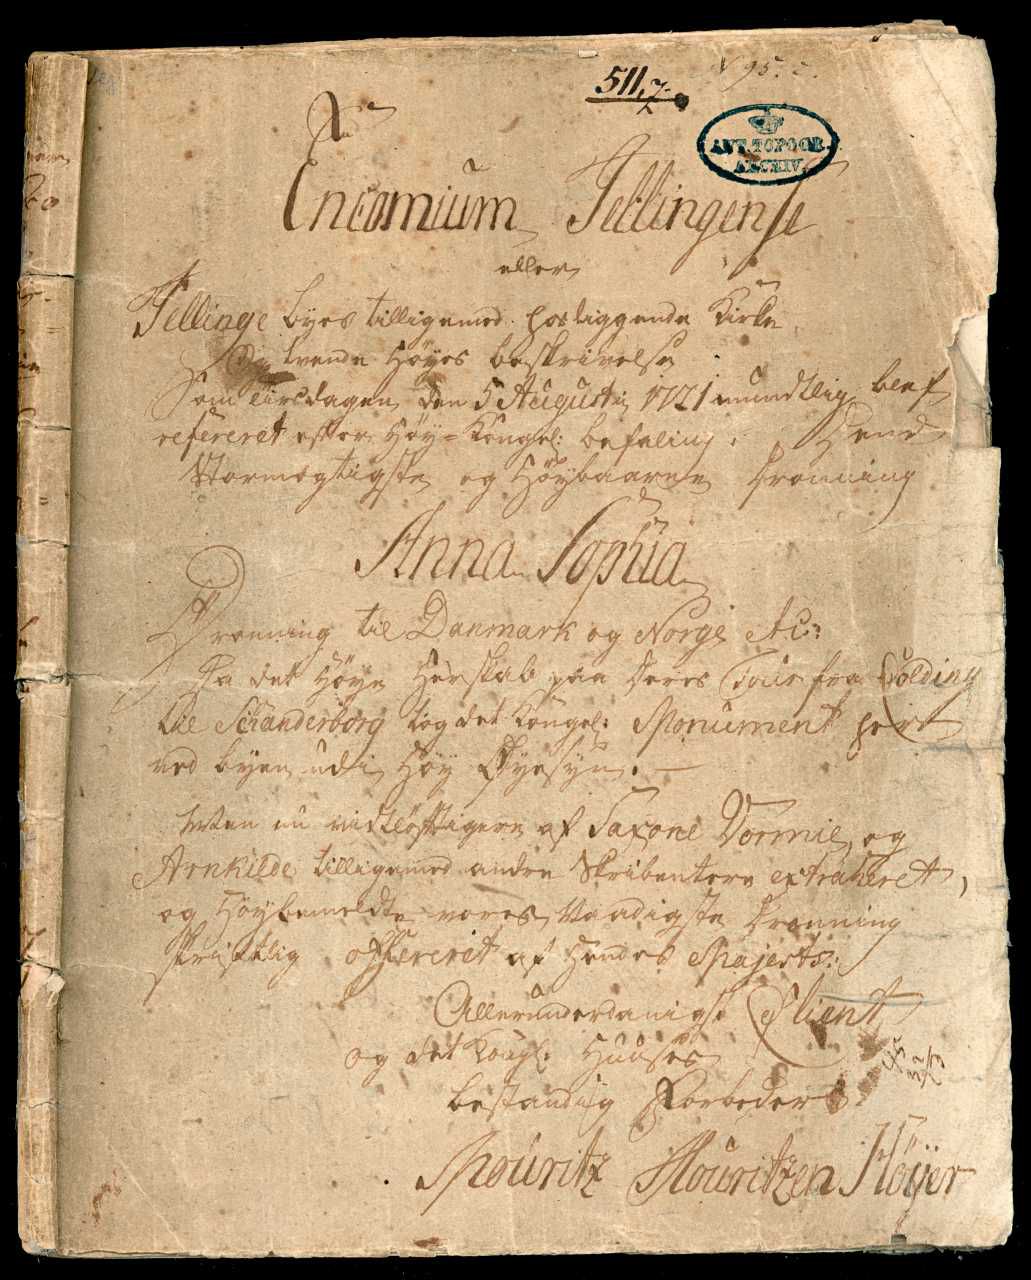 511,7
N 95. c.
ANT. TOPOGR.
ARCHIV.
Encomium Jellingense
eller
Jellinge byes tilligemed hosliggende Kirke,
Og tvende Höyes beskrivelse
Som tirsdagen den 5 Augusti, 1721 mundtlig blef
refereret efter Höy-Kongel: befaling. Hend
Stormegtigste og Höybaarne Dronning
Anna Sophia
Dronning til Danmark og Norge &c:
Da det Höye Herskab paa deres Tour fra Colding
til Schanderborg tog det Kongel: Monument her
ved byen udi Höy Öyesyn.
Men nu vidtlöftigere af Saxone Vormie, og
Arnkilde tilligemed andre Skribentere extraheret,
og Höybemeldte vores Naadigste Dronning
skriftlig offereret af Hendes Majests:
Allerunderdanigst Client
og det Kongl. Huuses
bestandig Forbeder
Mouritz Mouritzen Höÿer